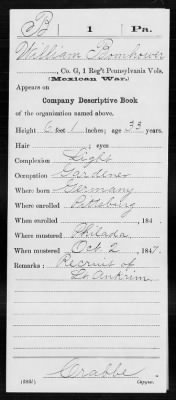 B 1 Pa.
William Bomhower
, Co. G, 1 Reg't Pennsylvania Vols.
(Mexican War.)
Appears on
Company Descriptive Book
of the organization named above.
Height 6 feet 1 inches; age 33 years.
Hair ; eyes
Complexion Light
Occupation Gardener
Where born Germany
Where enrolled Pittsburg
When enrolled , 184 .
Where mustered Philada
When mustered Oct 2, 1847.
Remarks: Recruit of
Lt. Ankrim.
Crabbe
Copyist.